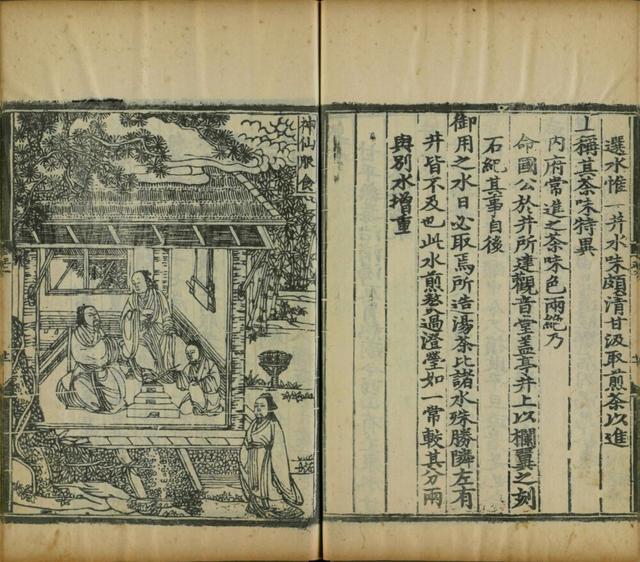 選水惟一井水味頗清甘汲取煎茶以進
上稱其茶味特異
内府常進之茶味色兩絶乃
命國公於井所建觀音堂盖亭井上以欄翼之刻
石紀其事自後
御用之水日必取焉所造湯茶比諸水殊勝隣左有
井皆不及也此水煎熬過澄瑩如一常較其分兩
與别水增重
神仙服食